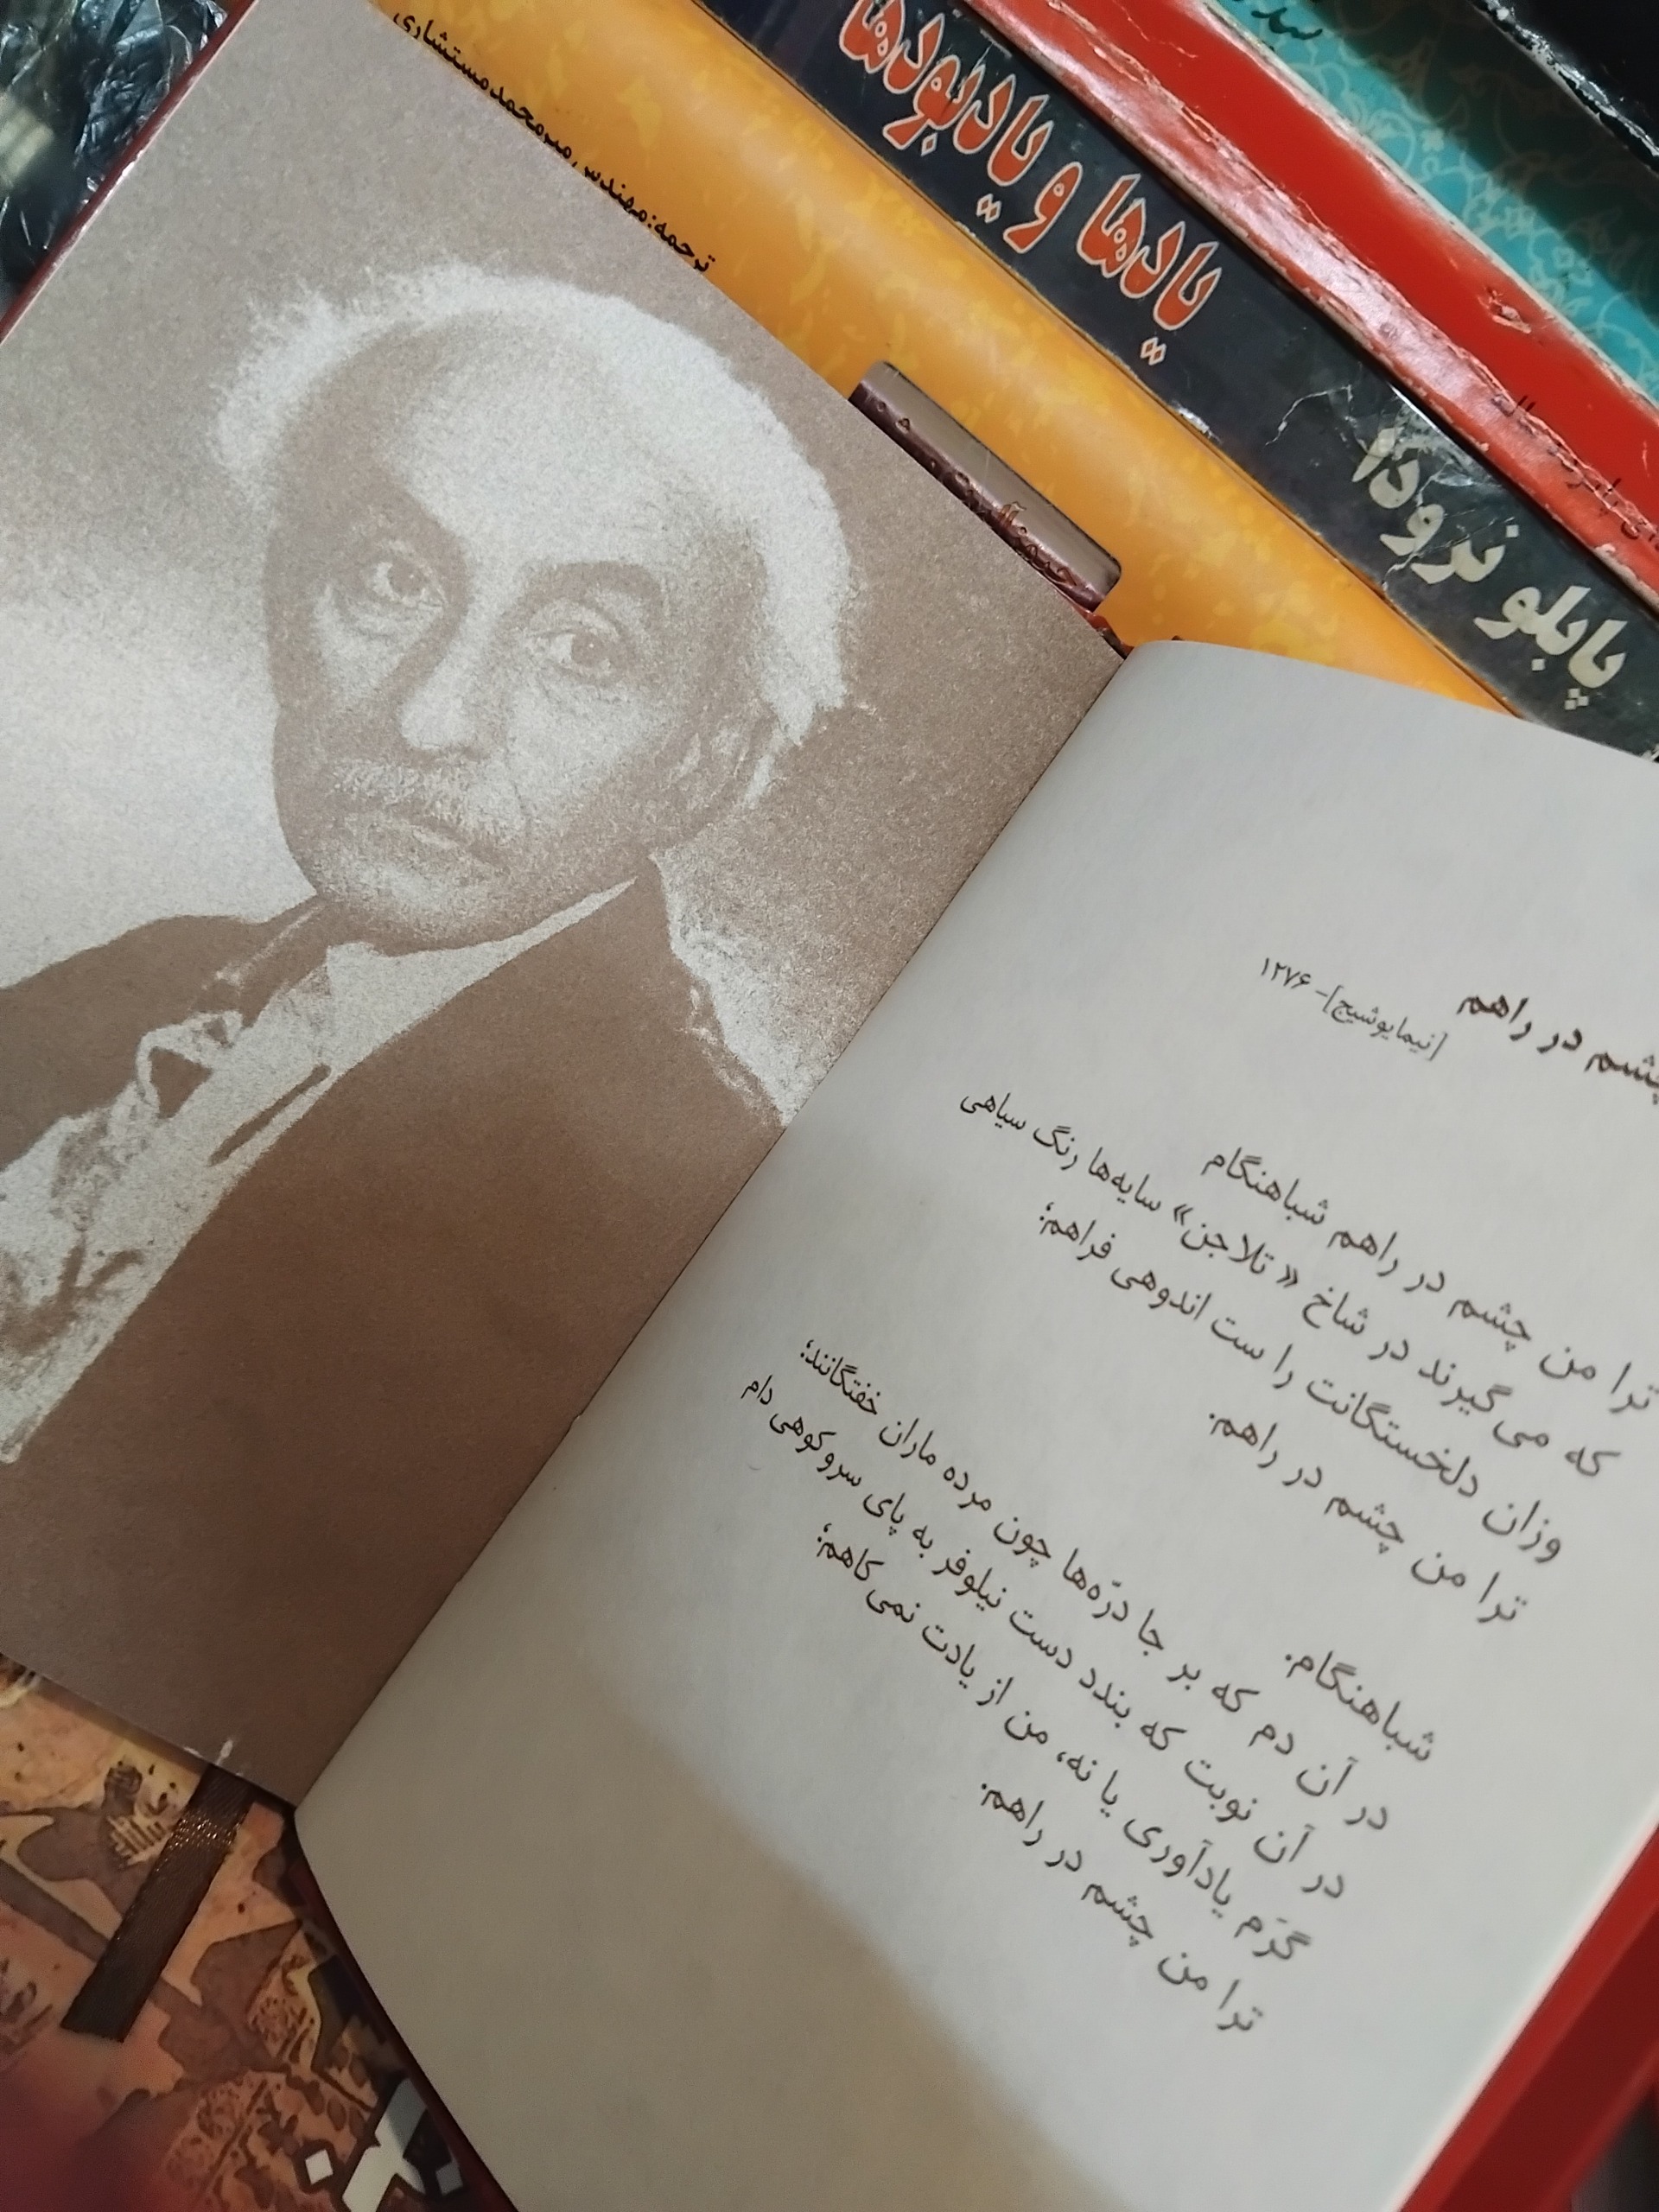 ترجمه: مهندس میرمحمد مستشاری
یادها و یادبودها
پابلو نرودا
چشم در راهم
[نیما یوشیج] - ۱۲۷۶
ترا من چشم در راهم شباهنگام
که می گیرند در شاخ « تلاجن» سایه‌ها رنگ سیاهی
وزان دلخستگانت را ست اندوهی فراهم؛
ترا من چشم در راهم.
شباهنگام.
در آن دم که بر جا درّه‌ها چون مرده ماران خفتگانند؛
در آن نوبت که بندد دست نیلوفر به پای سرو کوهی دام
گرَم یادآوری یا نه، من از یادت نمی کاهم؛
ترا من چشم در راهم.